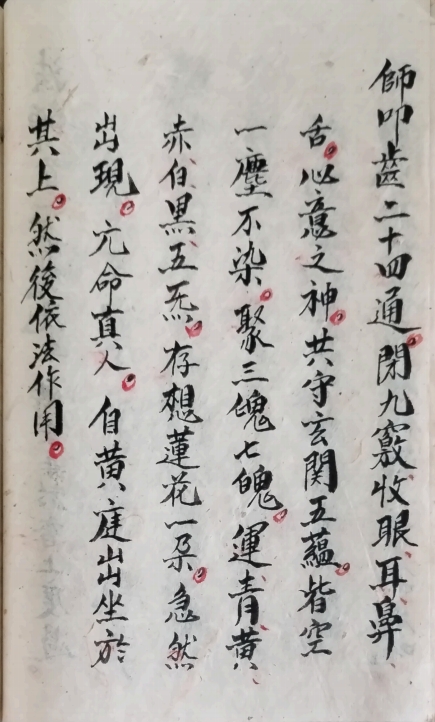 師叩齒二十四通。閉九竅收眼、耳、鼻、
舌。心意之神。共守玄関五蘊。皆空
一塵不染。聚三魂七魄。運青、黃、
赤、白、黒、五炁。存想蓮花一朶。急然
出現。元命真人。自黄庭出坐於
其上。然後依法作用。